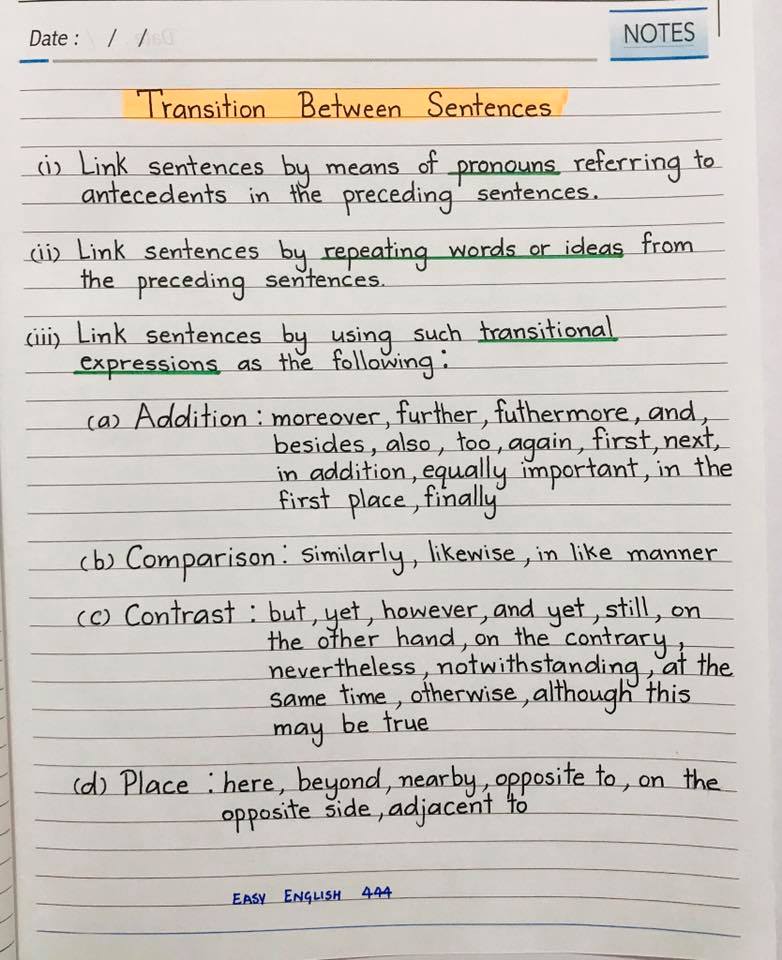 Date : / /
NOTES
Transition Between Sentences
(i) Link sentences by means of pronouns referring to
antecedents in the preceding sentences.
(ii) Link sentences by repeating words or ideas from
the preceding sentences.
(iii) Link sentences by using such transitional
expressions as the following :
(a) Addition : moreover, further, futhermore, and,
besides, also, too, again, first, next,
in addition, equally important, in the
first place, finally
(b) Comparison : similarly, likewise, in like manner
(c) Contrast : but, yet, however, and yet, still, on
the other hand, on the contrary,
nevertheless, notwithstanding, at the
same time, otherwise, although this
may be true
(d) Place : here, beyond, nearby, opposite to, on the
opposite side, adjacent to
EASY ENGLISH 444